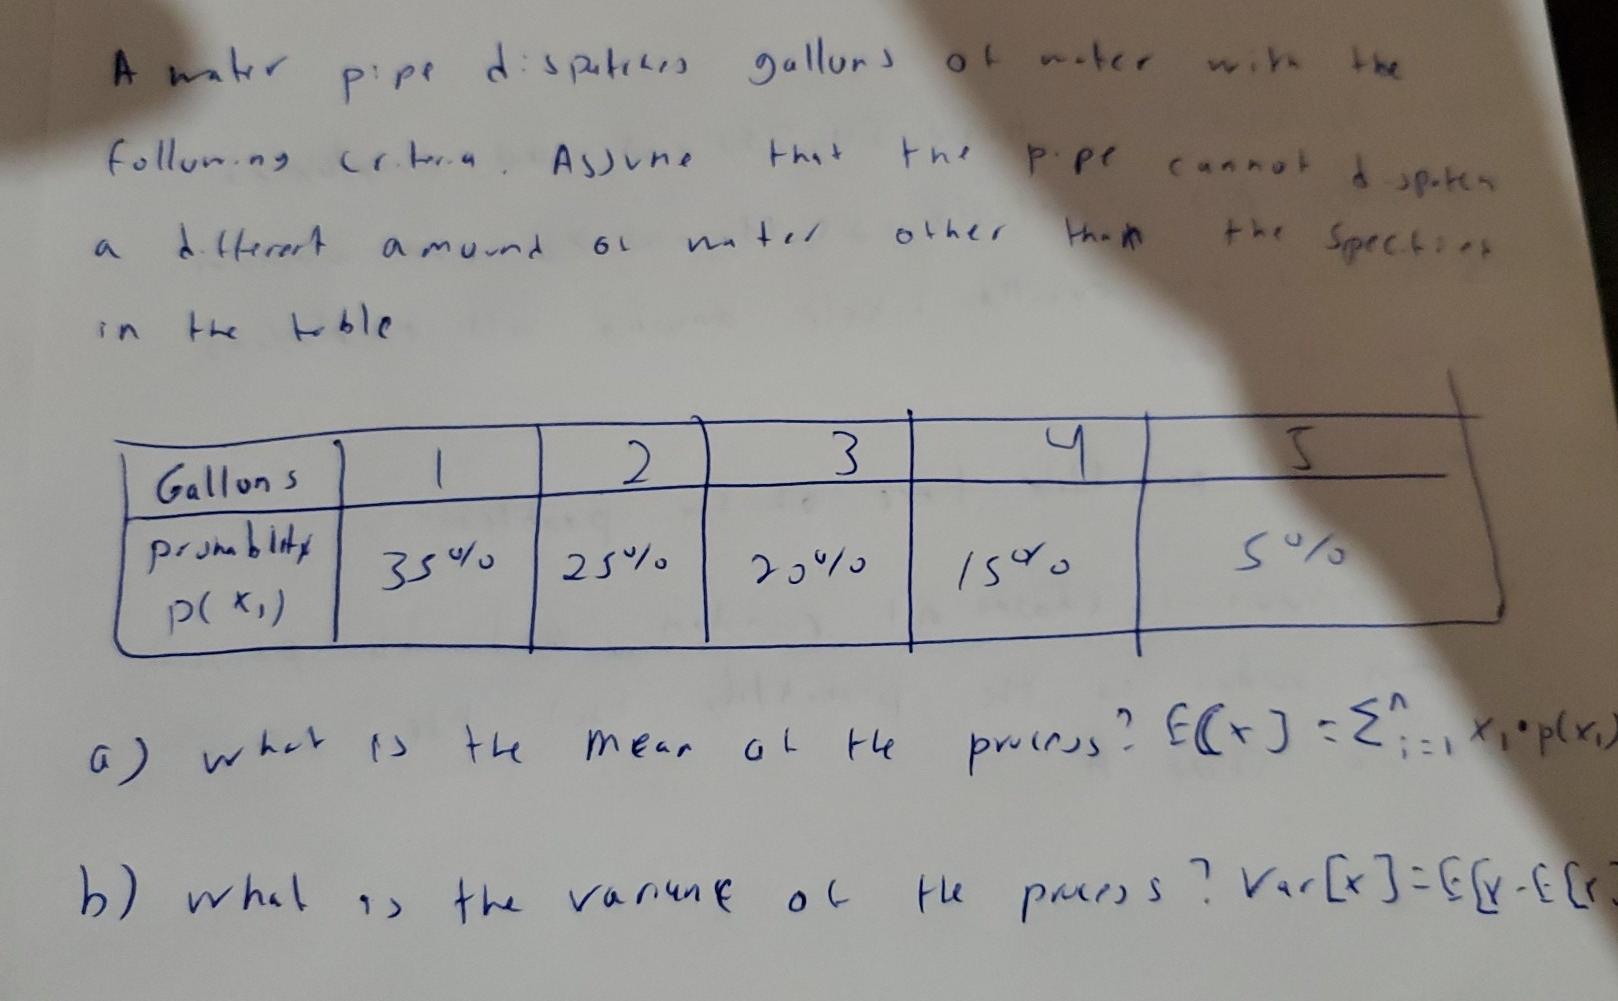 A water pipe dispatches gallons of water with the
following criteria. Assume that the pipe cannot dispatch
a different amound of water other than the
in the table
Gallons 1 2 3 4 5
probablity 35% 25% 20% 15% 5%
p(x₁)
a) what is the mean of the process? E[x] = Σⁿᵢ₌₁ xᵢ•p(xᵢ)
b) what is the variance of the process? Var[x]=E[x-E[x]